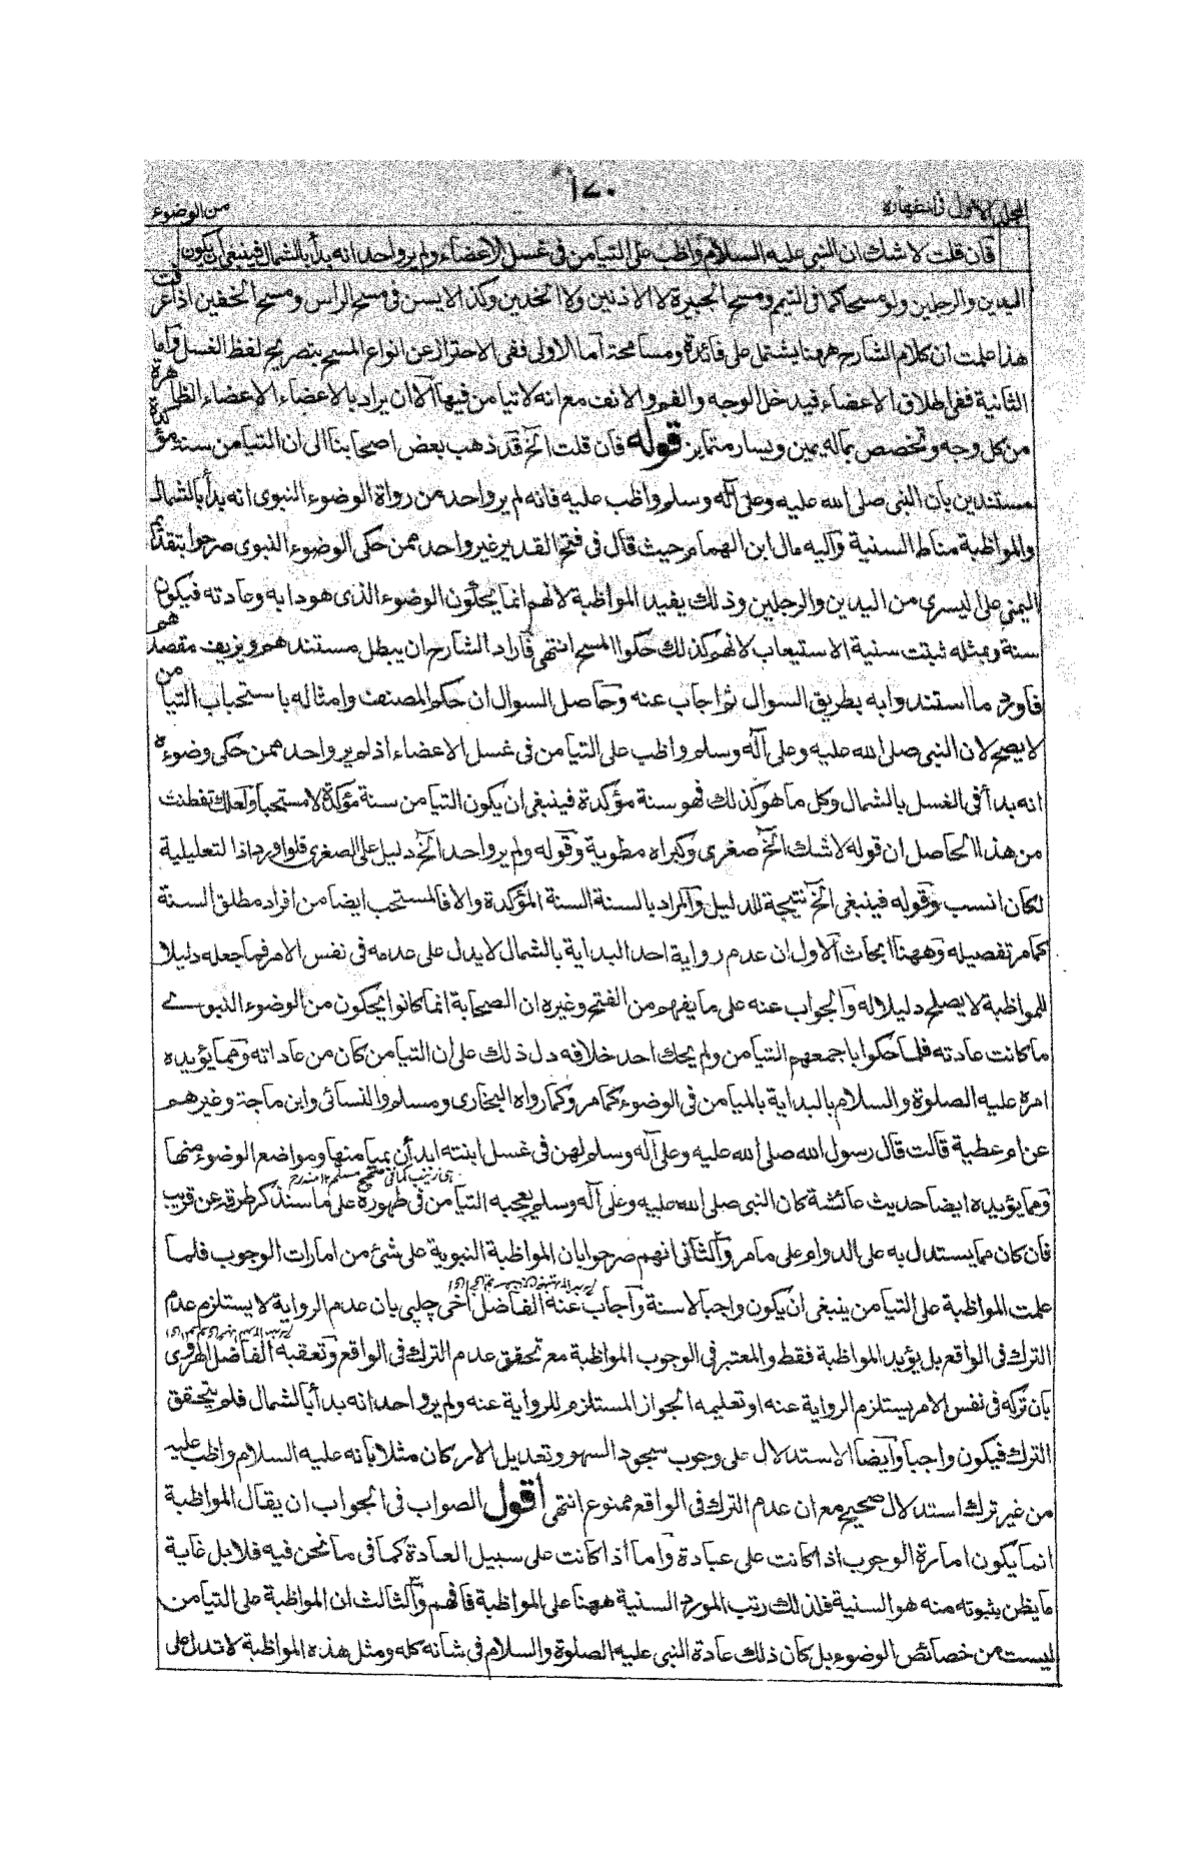 ١٧٠
المجلد الاول فى الطهارة
من الوضوء
فان قلت لا شك ان النبى عليه السلام واظب على التيامن فى غسل الاعضاء ولم يرو احد انه بدأ بالشمال فينبغى ان يكون
اليدين والرجلين ولو مسحا كما فى التيمم ومسح الجبيرة لا الاذنين ولا الخدين وكذا لا يسن فى مسح الراس ومسح الخفين اذا عرفت
هذا علمت ان كلام الشارح ههنا يشتمل على فائدة ومسامحة اما الاولى ففى الاحتراز عن انواع المسح بتصريح لفظ الغسل واما
الثانية ففى اطلاق الاعضاء فيدخل الوجه والفم والانف مع انه لا تيامن فيها الا ان يراد بالاعضاء الاعضاء الظاهرة
من كل وجه وتخصص بما له يمين ويسار متمايز قوله فان قلت الخ قد ذهب بعض اصحابنا الى ان التيامن سنة مؤكدة
مستندين بان النبى صلى الله عليه وعلى آله وسلم واظب عليه فانه لم يرو احد من رواة الوضوء النبوى انه بدأ بالشمال
والمواظبة مناط السنية واليه مال ابن الهمام حيث قال فى فتح القدير غير واحد ممن حكى الوضوء النبوى صرحوا بتقديم
اليمنى على اليسرى من اليدين والرجلين وذلك يفيد المواظبة لانهم انما يحكون الوضوء الذى هو دابه وعادته فيكون
سنة وبمثله ثبتت سنية الاستيعاب لانهم كذلك حكوا المسح انتهى فاراد الشارح ان يبطل مستندهم ويزيف مقصدهم
فاورد ما استندوا به بطريق السوال ثم اجاب عنه وحاصل السوال ان حكم المصنف وامثاله باستحباب التيامن
لا يصح لان النبى صلى الله عليه وعلى آله وسلم واظب على التيامن فى غسل الاعضاء اذ لم يرو احد ممن حكى وضوءه
انه بدأ فى الغسل بالشمال وكل ما هو كذلك فهو سنة مؤكدة فينبغى ان يكون التيامن سنة مؤكدة لا مستحبا ولعلك تفطنت
من هذا الحاصل ان قوله لا شك الخ صغرى وكبراه مطوية وقوله ولم يرو احد الخ دليل على الصغرى فلو اورد اذا لتعليلية
لكان انسب وقوله فينبغى الخ نتيجة للدليل والمراد بالسنة السنة المؤكدة والا فالمستحب ايضا من افراد مطلق السنة
كما مر تفصيله وههنا ابحاث الاول ان عدم رواية احد البداية بالشمال لا يدل على عدمه فى نفس الامر فما جعله دليلا
للمواظبة لا يصلح دليلا له والجواب عنه على ما يفهم من الفتح وغيره ان الصحابة انما كانوا يحكون من الوضوء النبوى
ما كانت عادته فلما حكوا باجمعهم التيامن ولم يحك احد خلافه دل ذلك على ان التيامن كان من عاداته ومما يؤيده
امره عليه الصلوة والسلام بالبداية بالميامن فى الوضوء كما مر وكما رواه البخارى ومسلم والنسائى وابن ماجة وغيرهم
عن ام عطية قالت قال رسول الله صلى الله عليه وعلى آله وسلم لهن فى غسل ابنته ابدأن بميامنها ومواضع الوضوء منها
هى زينب كما فى صحيح مسلم ١٢ منه رح
ومما يؤيده ايضا حديث عائشة كان النبى صلى الله عليه وعلى آله وسلم يعجبه التيامن فى طهوره على ما سنذكر طرقه عن قريب
فان كان مما يستدل به على الدوام على ما مر والثانى انهم صرحوا بان المواظبة النبوية على شئ من امارات الوجوب فلما
علمت المواظبة على التيامن ينبغى ان يكون واجبا لا سنة واجاب عنه الفاضل اخى چلپى بان عدم الرواية لا يستلزم عدم
الترك فى الواقع بل يؤيد المواظبة فقط والمعتبر فى الوجوب المواظبة مع تحقق عدم الترك فى الواقع وتعقبه الفاضل الهروى
بان تركه فى نفس الامر يستلزم الرواية عنه او تعليمه الجواز المستلزم للرواية عنه ولم يرو احد انه بدأ بالشمال فلم يتحقق
الترك فيكون واجبا وايضا الاستدلال على وجوب سجود السهو وتعديل الاركان مثلا بانه عليه السلام واظب عليه
من غير ترك استدلال صحيح مع ان عدم الترك فى الواقع ممنوع انتهى اقول الصواب فى الجواب ان يقال المواظبة
انما يكون امارة الوجوب اذا كانت على عبادة واما اذا كانت على سبيل العادة كما فى ما نحن فيه فلا بل غاية
ما يظن بثبوته منه هو السنية فلذلك رتب المورد السنية ههنا على المواظبة فافهم والثالث ان المواظبة على التيامن
ليست من خصائص الوضوء بل كان ذلك عادة النبى عليه الصلوة والسلام فى شانه كله ومثل هذه المواظبة لا تدل على